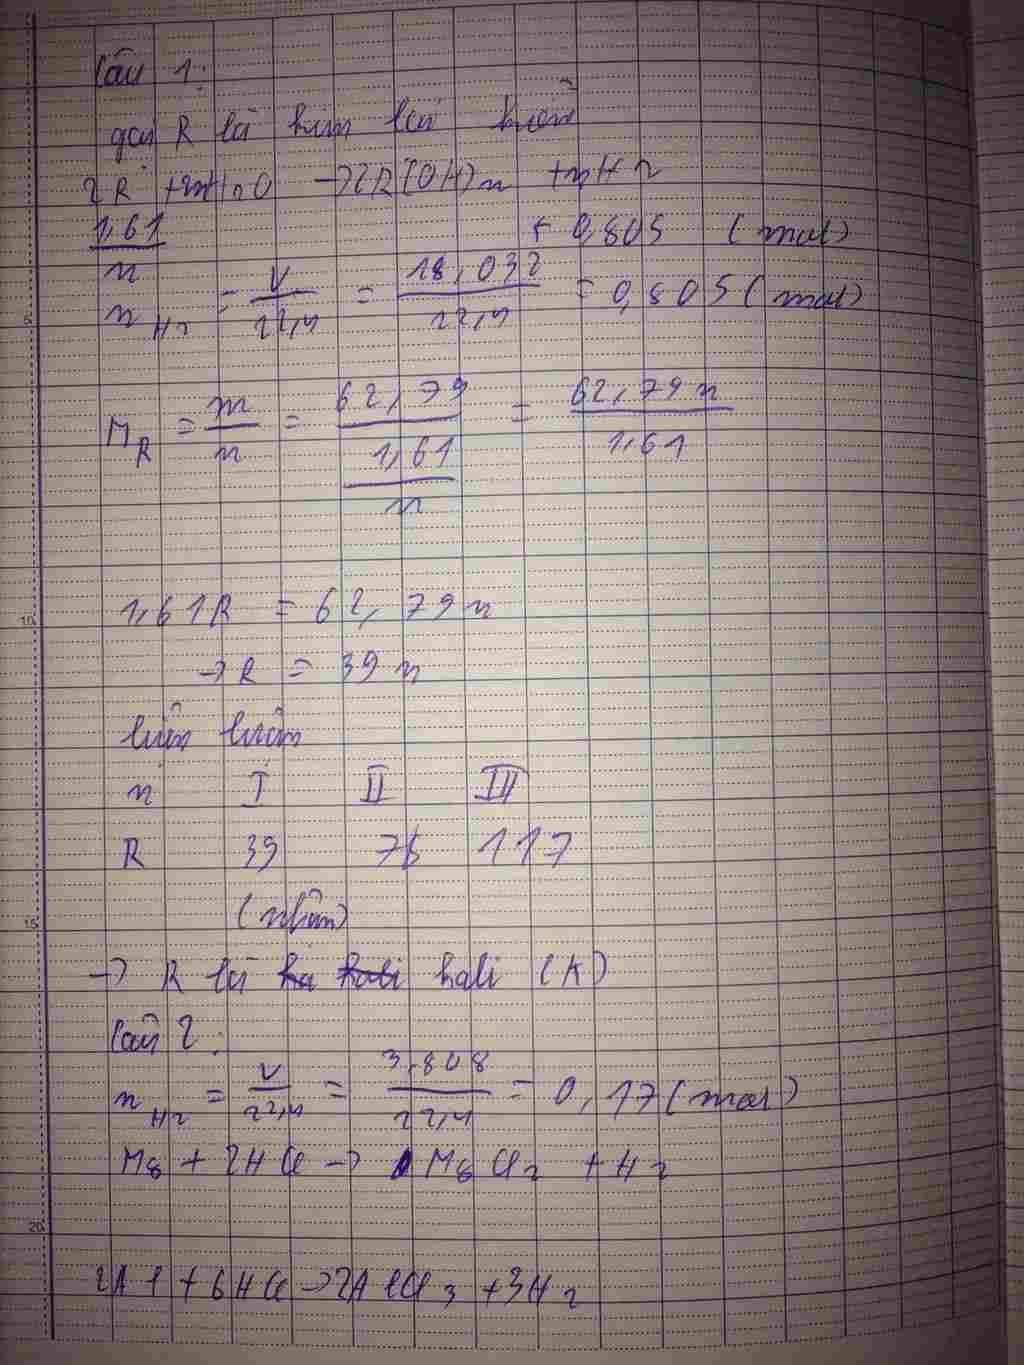 Câu 1:
gọi R là kim loại kiềm
2R + 2nH2O → 2R(OH)n + nH2
1,61/n ← 0,805 (mol)
n H2 = V/22,4 = 18,032/22,4 = 0,805 (mol)
M R = m/n = 62,79/(1,61/n) = 62,79n/1,61
1,61R = 62,79n
→ R = 39n
biện luận
n I II III
R 39 78 117
(nhận)
→ R là kali (K)
Câu 2:
n H2 = V/22,4 = 3,808/22,4 = 0,17 (mol)
Mg + 2HCl → MgCl2 + H2
2Al + 6HCl → 2AlCl3 + 3H2
5
10
15
20